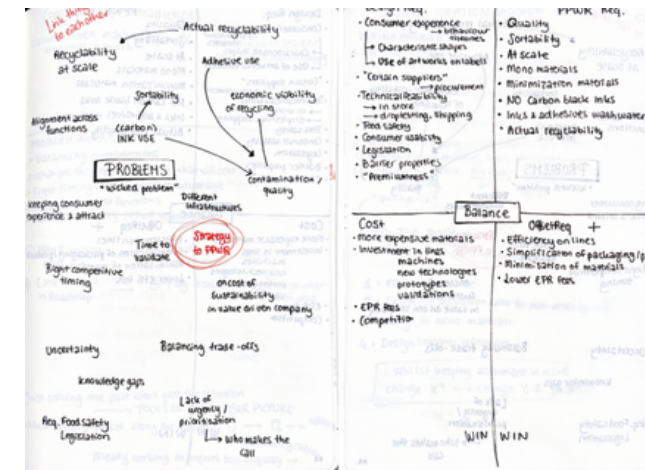 Link things
to eachother
Actual recyclability
Recyclability
at scale
Adhesive use
Sortability
economic viability
of recycling
alignment across
functions
(carbon)
INK USE
PROBLEMS
"wicked problem"
contamination /
quality
Different
infrastructures
keeping consumer
experience & attract
Strategy
to PPWR
Time to
validate
Right competitive
timing
on cost of
sustainability
in value driven company
Uncertainty
Balancing trade-offs
knowledge gaps
Lack of
urgency /
prioritisation
Req. Food safety
Legislation
who makes the
call
Design Req.
• Consumer experience
behaviour
Characteristic shapes
Use of artworks on labels
• "Certain suppliers"
procurement
• Technical feasibility
in store
droptesting, shipping
• Food safety
• Consumer usability
• Legislation
• Barrier properties
• "Premiumness"
PPWR Req.
• Quality
• Sortability
• At scale
• Mono materials
• Minimization materials
• NO Carbon black inks
• Inks & adhesives washwater
• Actual recyclability
Balance
Cost
• more expensive materials
• Investment in lines
machines
new technologies
prototypes
validations
• EPR fees
• Competition
+
• Efficiency on lines
• Simplification of packaging/p
• Minimisation of materials
• Lower EPR fees
WIN WIN